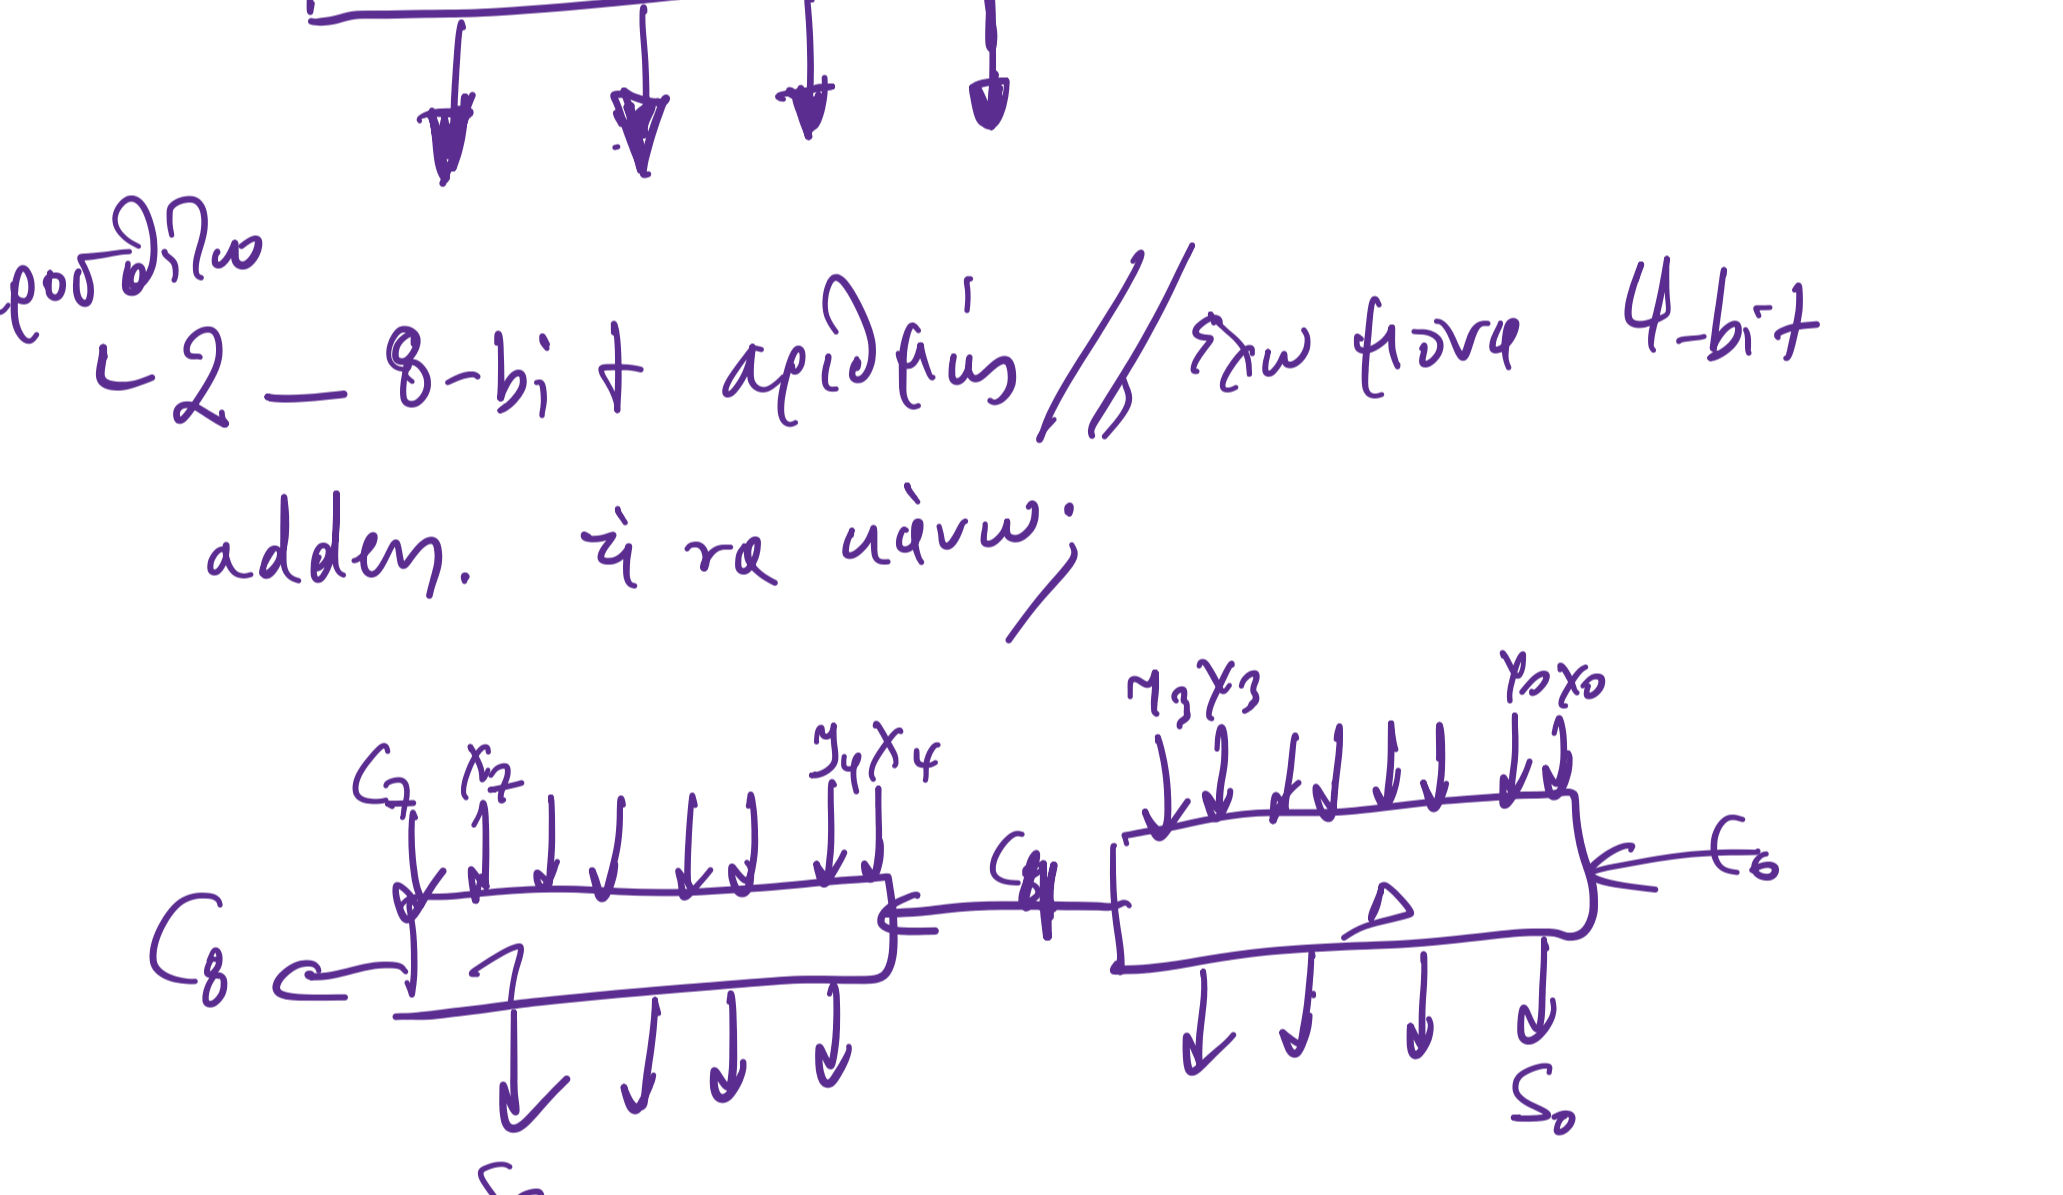 προσθέτω
↳ 2 — 8-bit αριθμούς // έχω μόνο 4-bit
adders. τί να κάνω;
y3 x3 y0 x0
C7 x7 y4 x4
C4 C0
C8
S0